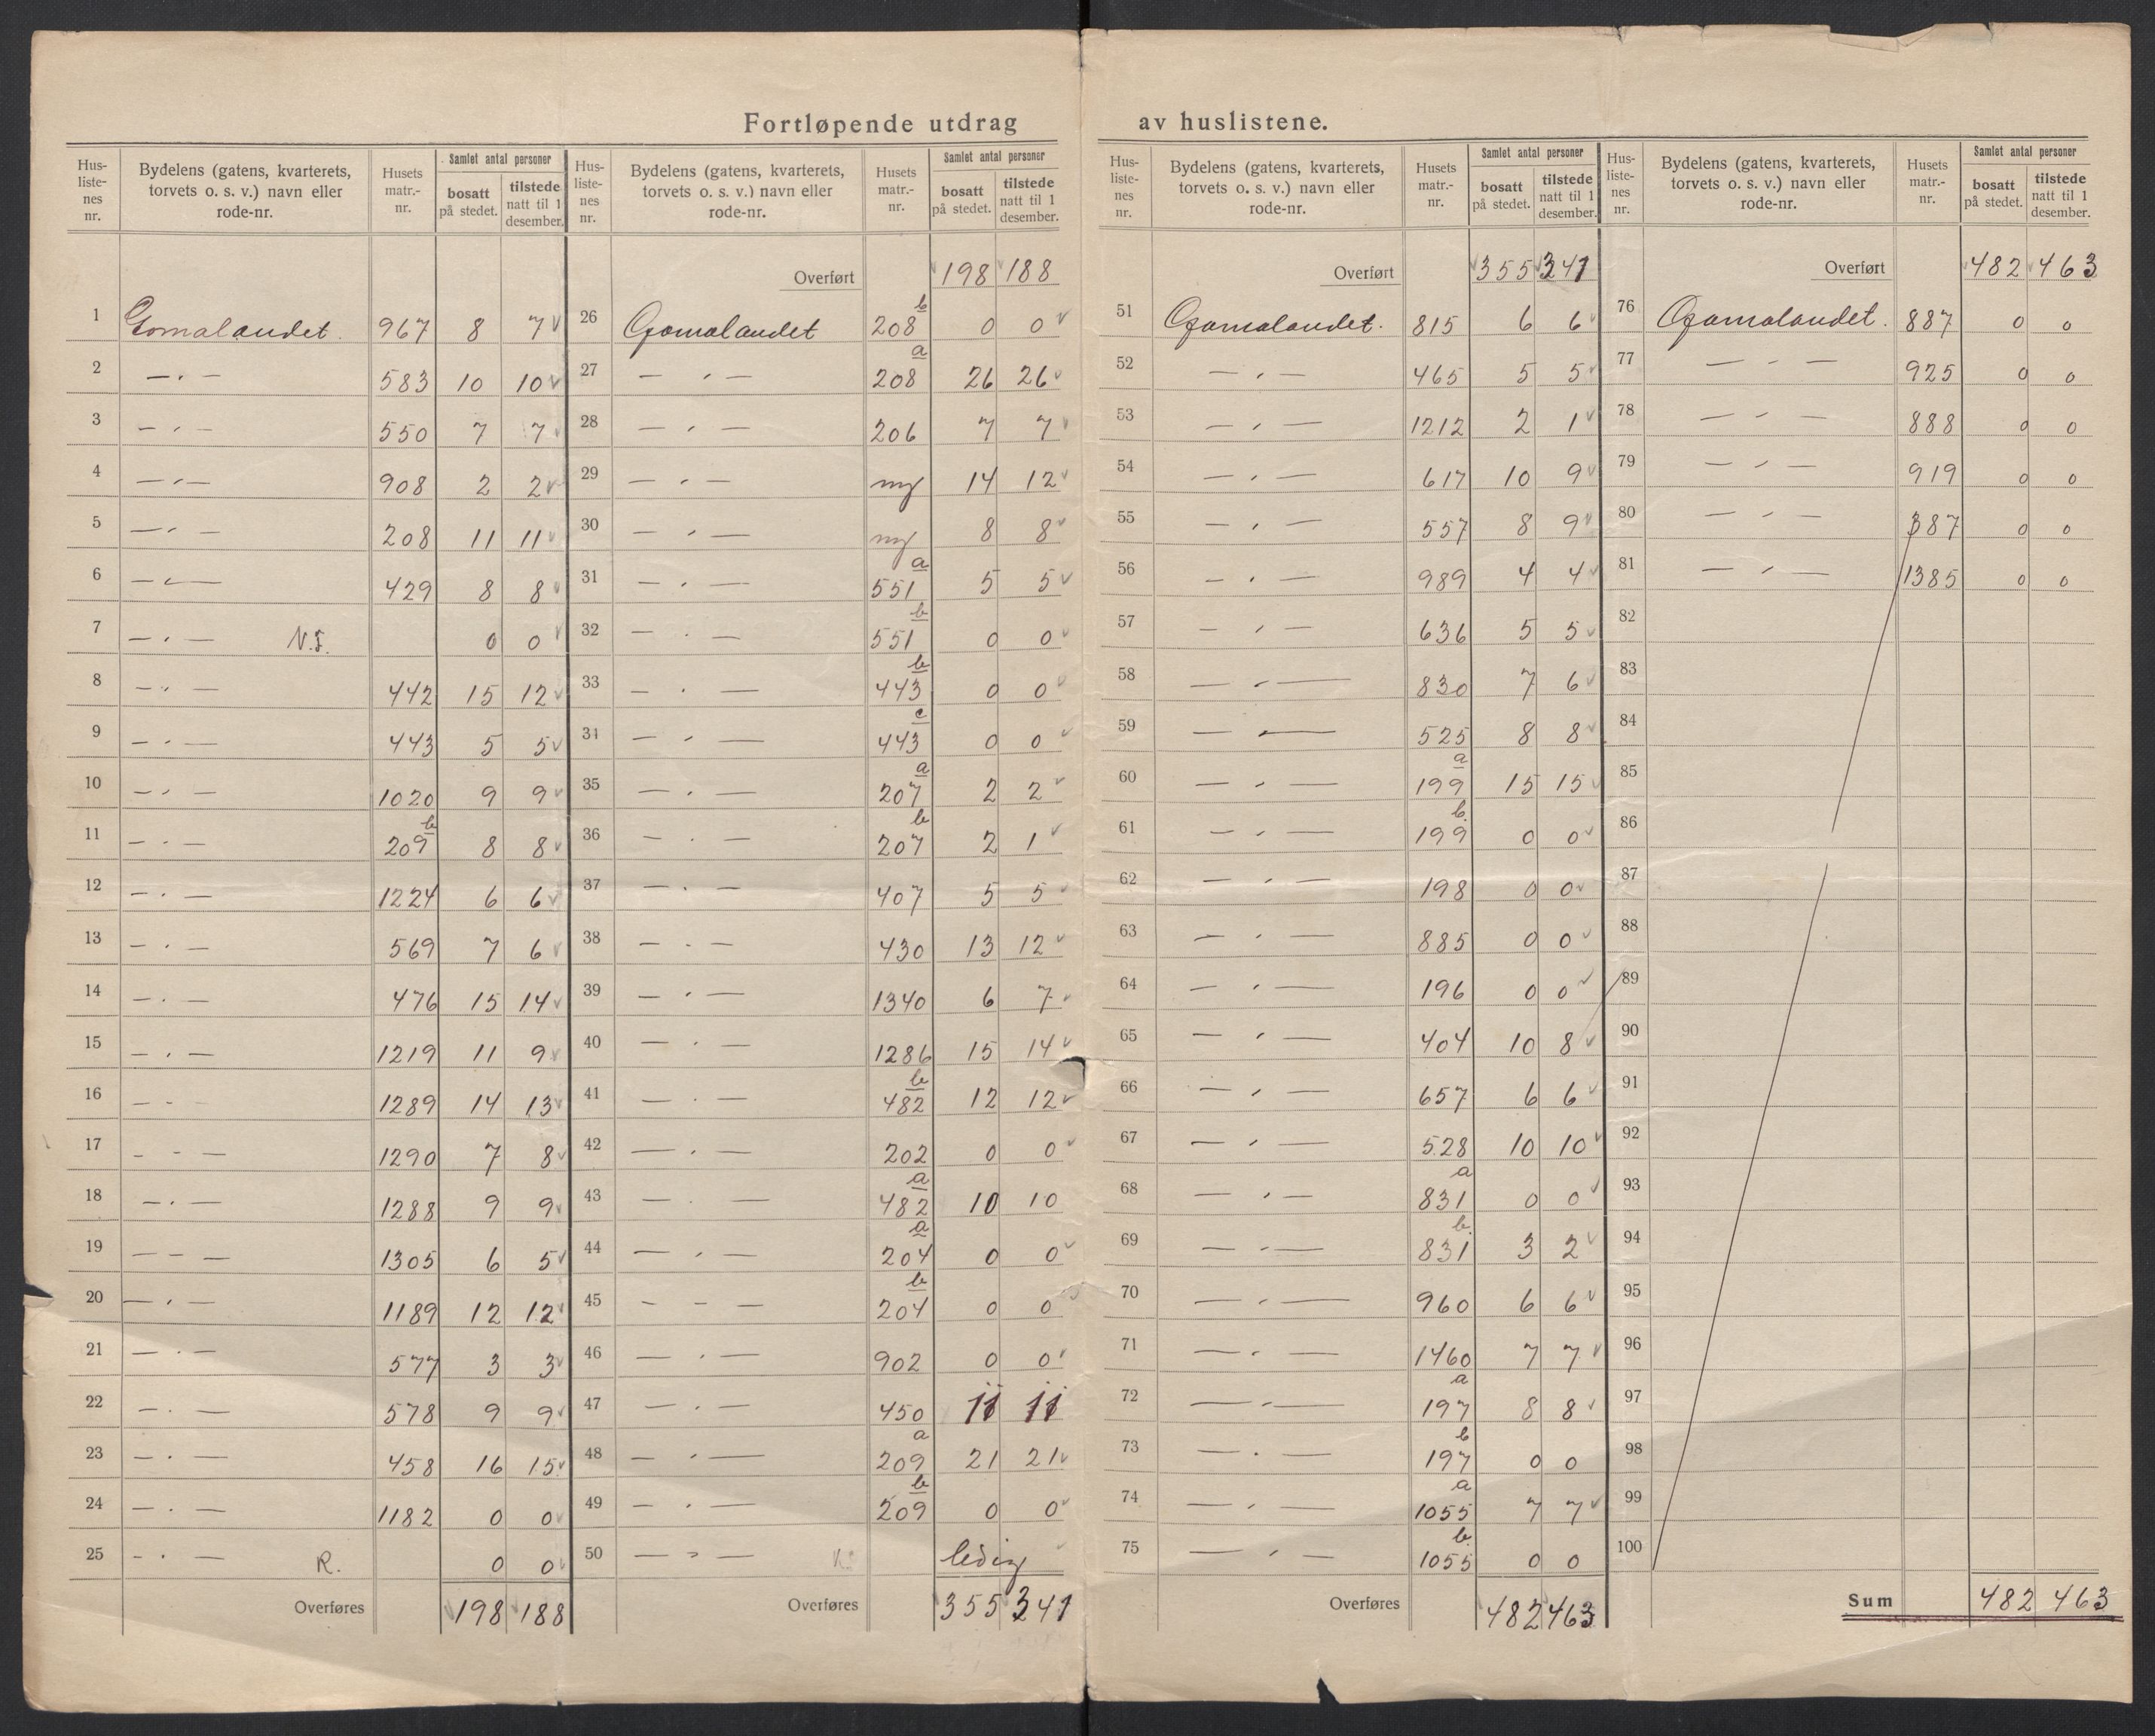 Fortløpende utdrag av huslistene.
Hus-liste-nes nr. | Bydelens (gatens, kvarterets, torvets o. s. v.) navn eller rode-nr. | Husets matr.-nr. | Samlet antal personer bosatt på stedet. | tilstede natt til 1 desember.
1 Gomalandet. 967 8 7
2 — „ — 583 10 10
3 — „ — 550 7 7
4 — „ — 908 2 2
5 — „ — 208 11 11
6 — „ — 429 8 8
7 — „ — N.S. 0 0
8 — „ — 442 15 12
9 — „ — 443 5 5
10 — „ — 1020 9 9
11 — „ — 209 b 8 8
12 — „ — 1224 6 6
13 — „ — 569 7 6
14 — „ — 476 15 14
15 — „ — 1219 11 9
16 — „ — 1289 14 13
17 — „ — 1290 7 8
18 — „ — 1288 9 9
19 — „ — 1305 6 5
20 — „ — 1189 12 12
21 — „ — 577 3 3
22 — „ — 578 9 9
23 — „ — 458 16 15
24 — „ — 1182 0 0
25 — „ — R. 0 0
Overføres 198 188
Hus-liste-nes nr. | Bydelens (gatens, kvarterets, torvets o. s. v.) navn eller rode-nr. | Husets matr.-nr. | Samlet antal personer bosatt på stedet. | tilstede natt til 1 desember.
Overført 198 188
26 Gomalandet 208 b 0 0
27 — „ — 208 a 26 26
28 — „ — 206 7 7
29 — „ — ny 14 12
30 — „ — ny 8 8
31 — „ — 551 a 5 5
32 — „ — 551 b 0 0
33 — „ — 443 b 0 0
34 — „ — 443 c 0 0
35 — „ — 207 a 2 2
36 — „ — 207 b 2 1
37 — „ — 407 5 5
38 — „ — 430 13 12
39 — „ — 1340 6 7
40 — „ — 1286 15 14
41 — „ — 482 b 12 12
42 — „ — 202 0 0
43 — „ — 482 a 10 10
44 — „ — 204 a 0 0
45 — „ — 204 b 0 0
46 — „ — 902 0 0
47 — „ — 450 11 11
48 — „ — 209 a 21 21
49 — „ — 209 b 0 0
50 — „ — ledig
Overføres 355 341
Hus-liste-nes nr. | Bydelens (gatens, kvarterets, torvets o. s. v.) navn eller rode-nr. | Husets matr.-nr. | Samlet antal personer bosatt på stedet. | tilstede natt til 1 desember.
Overført 355 341
51 Gomalandet. 815 6 6
52 — „ — 465 5 5
53 — „ — 1212 2 1
54 — „ — 617 10 9
55 — „ — 557 8 9
56 — „ — 989 4 4
57 — „ — 636 5 5
58 — „ — 830 7 6
59 — „ — 525 8 8
60 — „ — 199 a 15 15
61 — „ — 199 b. 0 0
62 — „ — 198 0 0
63 — „ — 885 0 0
64 — „ — 196 0 0
65 — „ — 404 10 8
66 — „ — 657 6 6
67 — „ — 528 10 10
68 — „ — 831 a 0 0
69 — „ — 831 b. 3 2
70 — „ — 960 6 6
71 — „ — 1460 7 7
72 — „ — 197 a 8 8
73 — „ — 197 b 0 0
74 — „ — 1055 a 7 7
75 — „ — 1055 b. 0 0
Overføres 482 463
Hus-liste-nes nr. | Bydelens (gatens, kvarterets, torvets o. s. v.) navn eller rode-nr. | Husets matr.-nr. | Samlet antal personer bosatt på stedet. | tilstede natt til 1 desember.
Overført 482 463
76 Gomalandet. 887 0 0
77 — „ — 925 0 0
78 — „ — 888 0 0
79 — „ — 919 0 0
80 — „ — 387 0 0
81 — „ — 1385 0 0
82
83
84
85
86
87
88
89
90
91
92
93
94
95
96
97
98
99
100
Sum 482 463